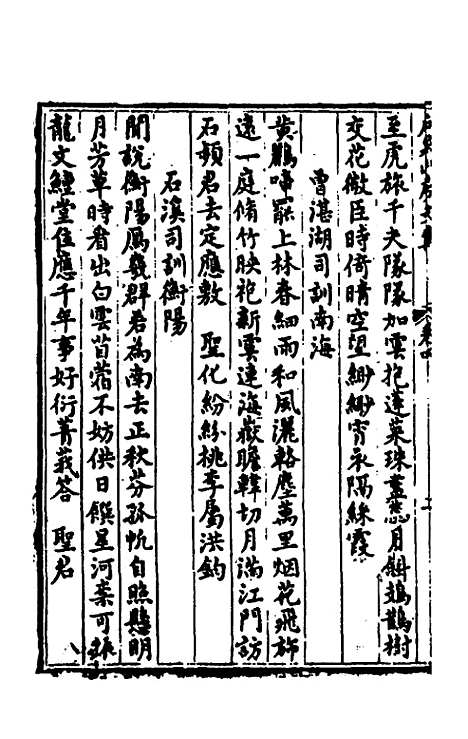 至虎旅千夫隊隊加雲抱蓬萊珠蓋懸月斜鳷鵲樹
交花微臣時倚晴空望緲緲霄永隔綵霞
曾湛湖司訓南海
黃鸝啼罷上林春細雨和風灑輅塵萬里烟花飛旆
遠一庭脩竹映袍新雲連海嶽瞻韓切月滿江門訪
石頻君去定應敷　聖化紛紛桃李屬洪鈞
石溪司訓衡陽
聞說衡陽鴈幾群君為南去正秋芬孤帆自照懸明
月芳草時看出白雲苜蓿不妨供日饌星河桒可
龍文鱣堂佳應千年事好衍菁莪答　聖君